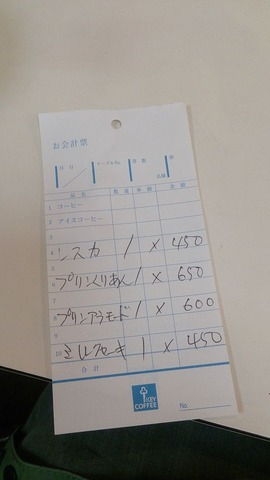 お会計票
月 日 テーブルNo. 客数 係
品名 数量 単価 金額
1 コーヒー
2 アイスコーヒー
3
4 レスカ 1 × 450
5
6 プリンくりあん 1 × 650
7
8 プリンアラモード 1 × 600
9
10 ミルクセーキ 1 × 450
合計
KEY
COFFEE
No.